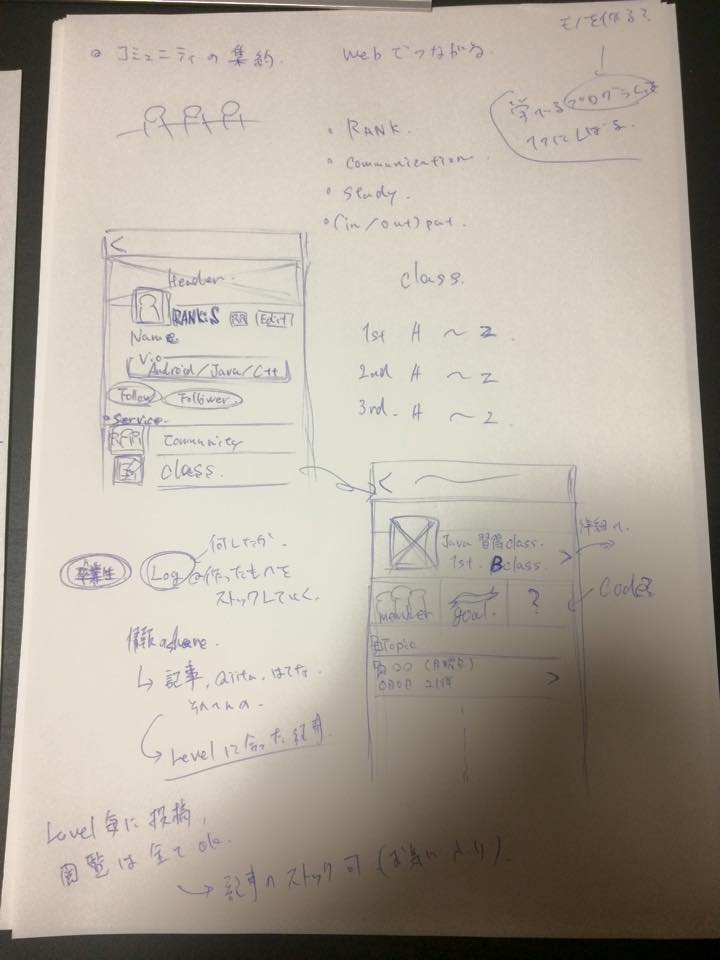 コミュニティの集約.
webでつながる
モノを作る?
学べるプログラムを
1つにしぼる.
RANK.
communication
study.
(in/out)put.
Header
RANK:S
Edit
Name
Android/Java/C++
Follow
Follower
Service
Community
class.
class.
1st A ～ Z
2nd A ～ Z
3rd. A ～ Z
Java 習得class.
1st. Bclass.
詳細へ.
member
goal.
?
Topic
卒業生
Log
何したか.
作ったものを
ストックしていく.
情報のshare.
記事, Qiita, はてな
Levelに合った記事
Level毎に投稿,
閲覧は全てok.
記事のストック可 (お気に入り).